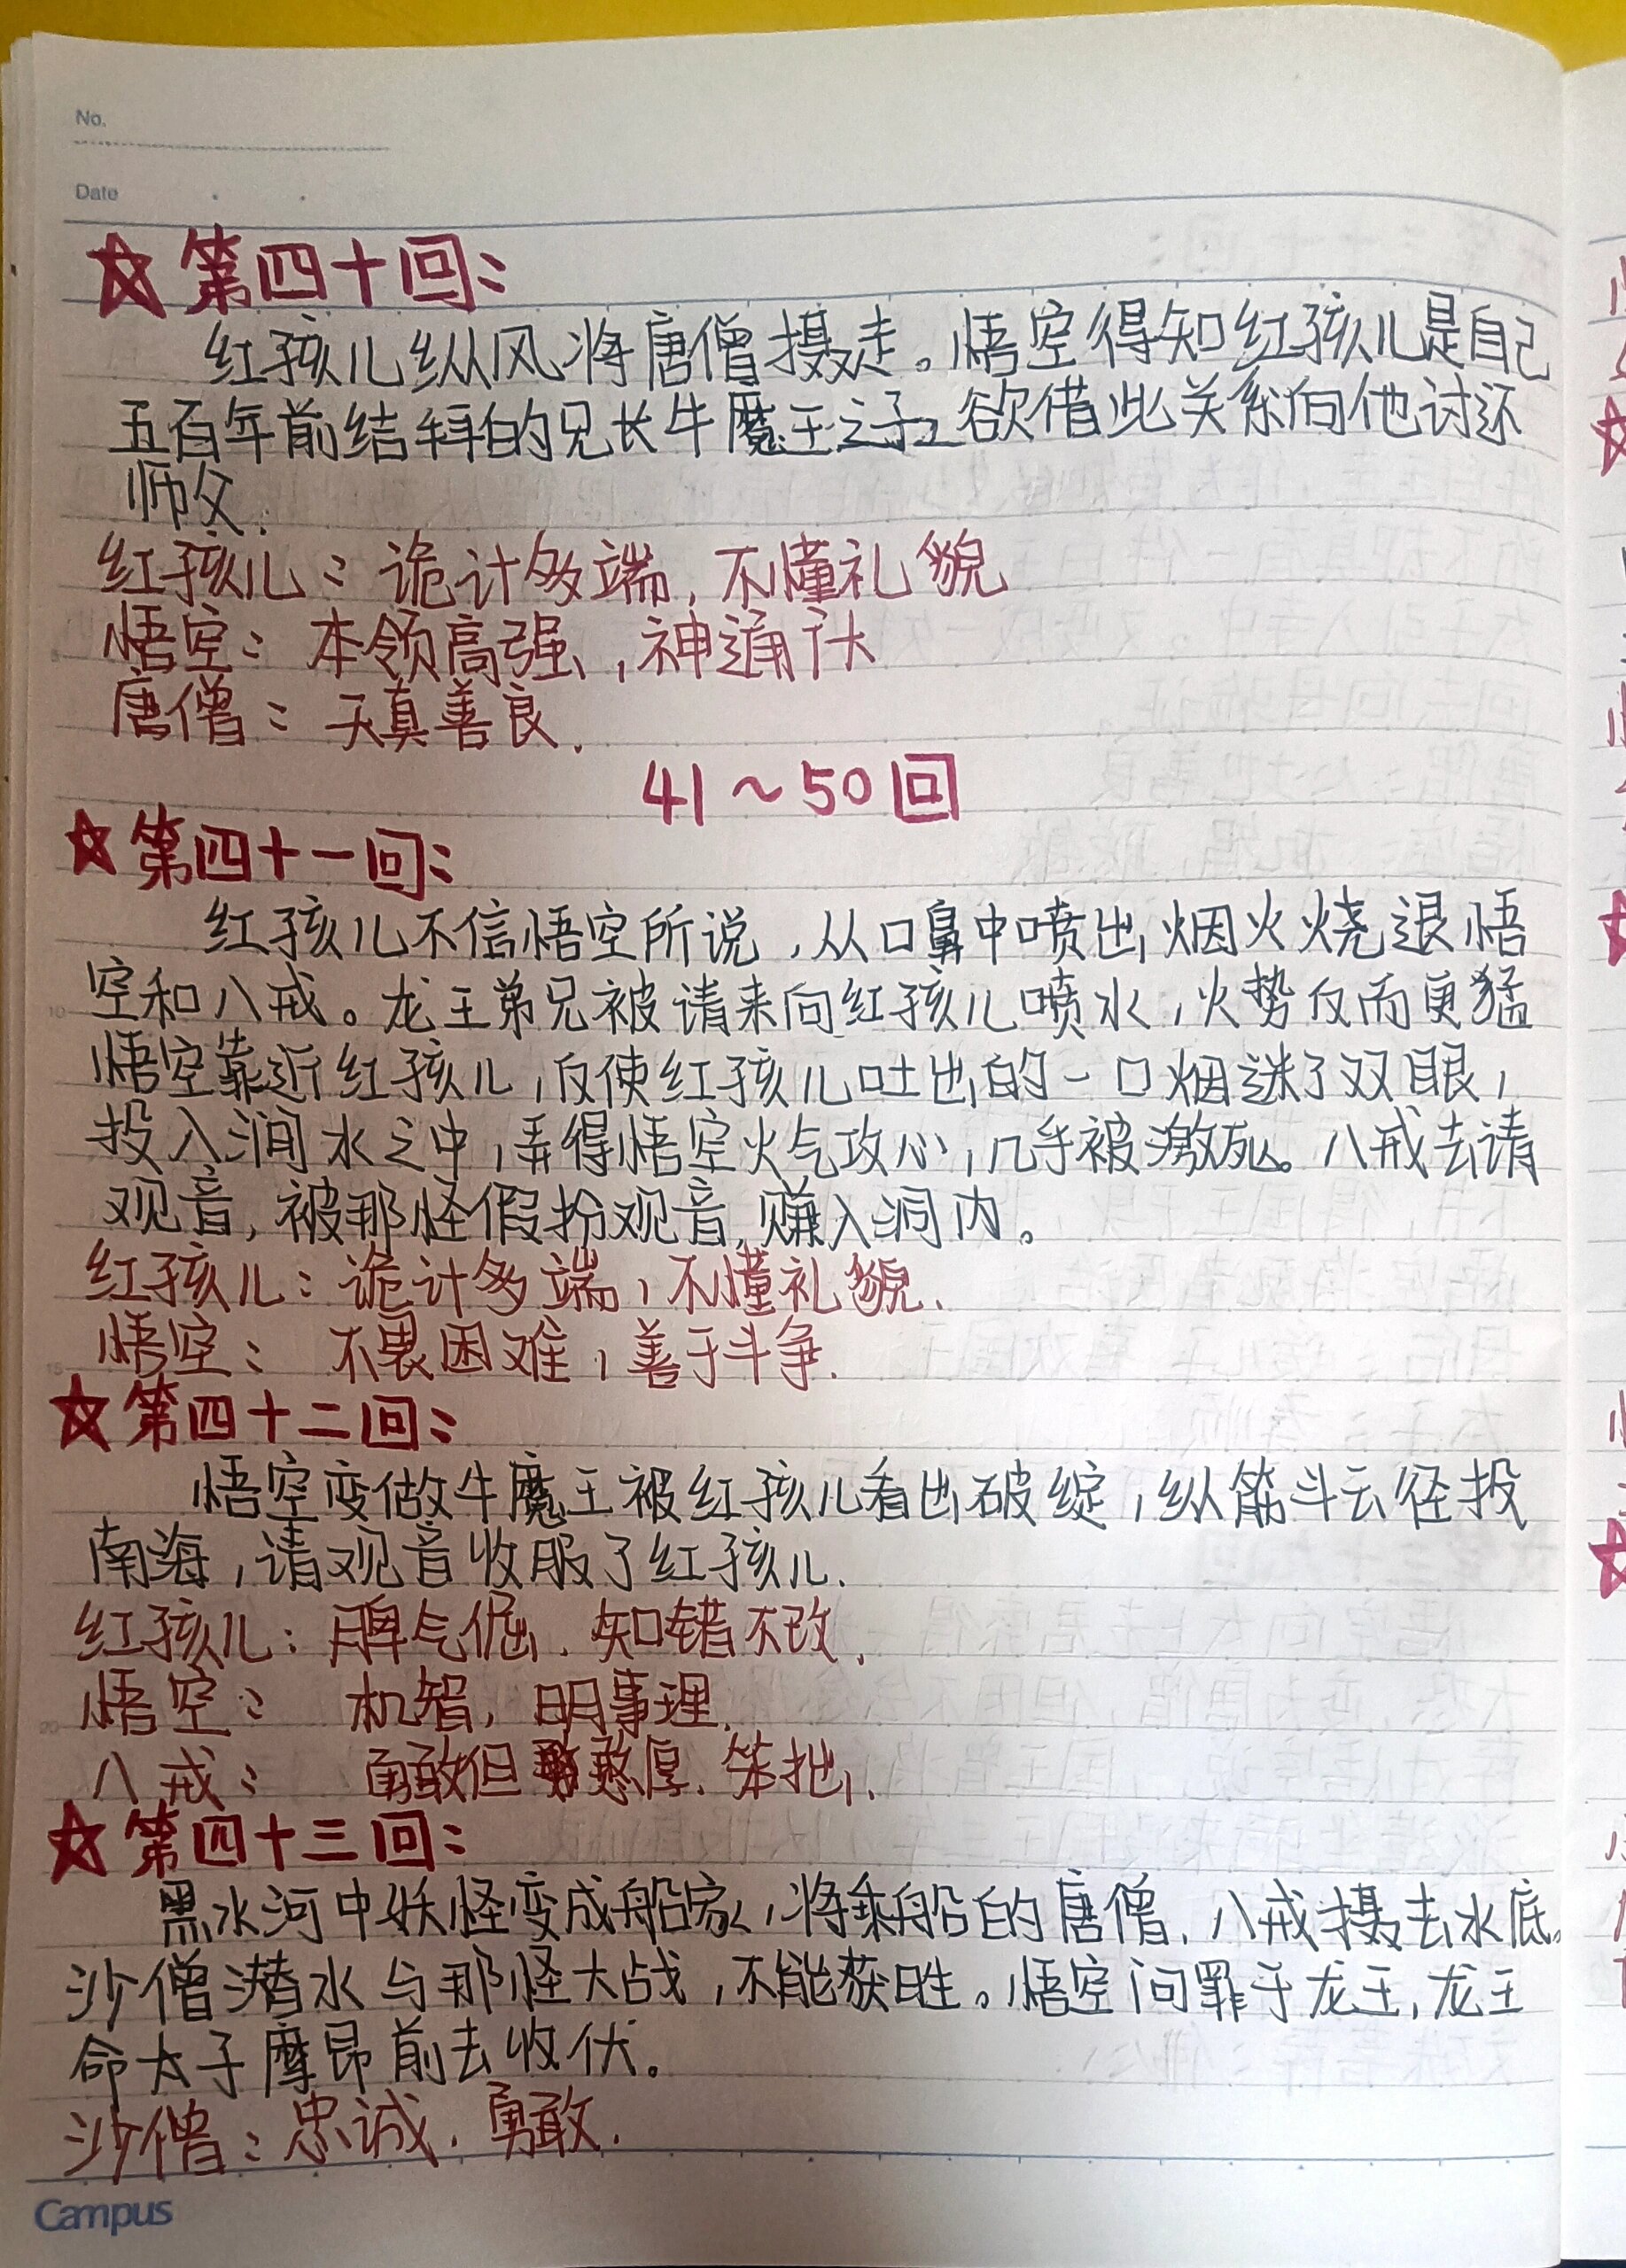 No.
Date
☆第四十回:
红孩儿纵风将唐僧摄走。悟空得知红孩儿是自己
五百年前结拜的兄长牛魔王之子,欲借此关系向他讨还
师父.
红孩儿: 诡计多端, 不懂礼貌
悟空: 本领高强, 神通广大
唐僧: 天真善良.
41~50回
☆第四十一回:
红孩儿不信悟空所说,从口鼻中喷出烟火烧退悟
空和八戒。龙王弟兄被请来向红孩儿喷水,火势反而更猛
悟空靠近红孩儿,反使红孩儿吐出的一口烟迷了双眼,
投入涧水之中,弄得悟空火气攻心,几乎被激死。八戒去请
观音,被那怪假扮观音,赚入洞内。
红孩儿: 诡计多端, 不懂礼貌.
悟空: 不畏困难, 善于斗争.
☆第四十二回:
悟空变做牛魔王被红孩儿看出破绽,纵筋斗云径投
南海,请观音收服了红孩儿.
红孩儿: 脾气倔. 知错不改.
悟空: 机智, 明事理.
八戒: 勇敢但憨厚. 笨拙.
☆第四十三回:
黑水河中妖怪变成船家,将乘船的唐僧.八戒摄去水底。
沙僧潜水与那怪大战,不能获胜。悟空问罪于龙王,龙王
命太子摩昂前去收伏。
沙僧: 忠诚. 勇敢.
Campus